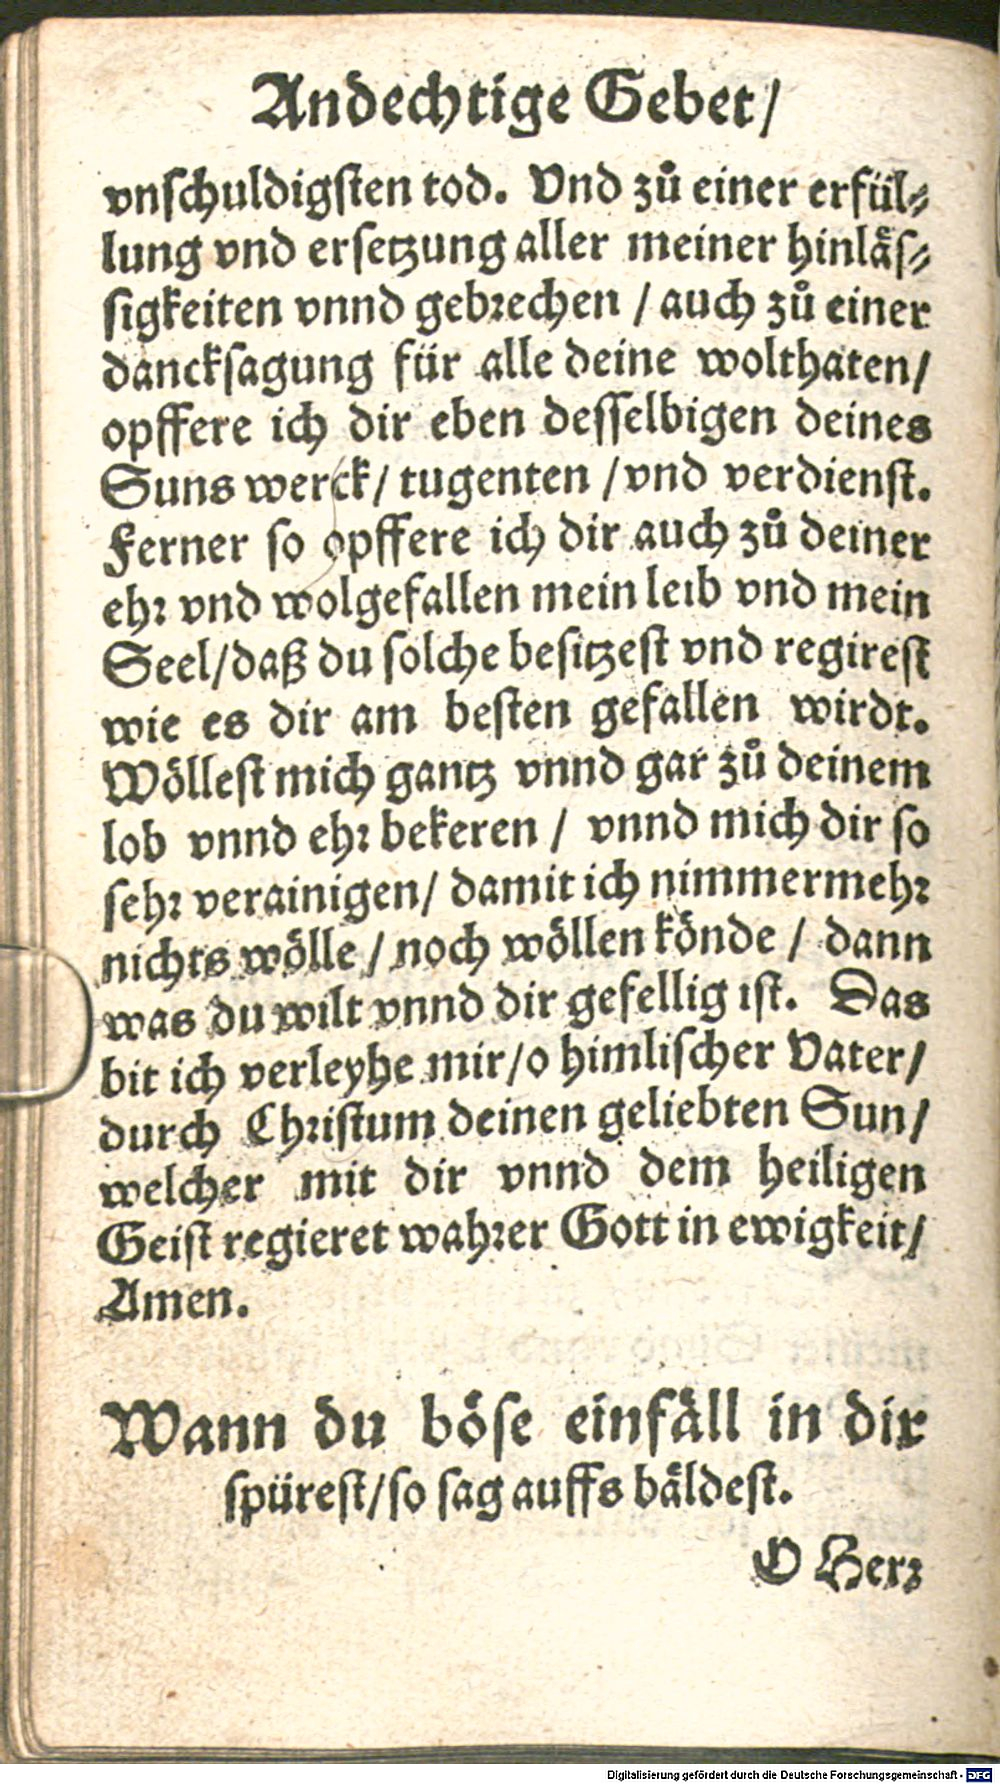 Andechtige Gebet/
vnſchuldigſten tod. Vnd zuͦ einer erfuͤl⸗
lung vnd erſetzung aller meiner hinlaͤſ⸗
ſigkeiten vnnd gebꝛechen / auch zuͦ einer
danckſagung fuͤr alle deine wolthaten/
opffere ich dir eben deſſelbigen deines
Suns werck/ tugenten /vnd verdienſt.
Ferner ſo opffere ich dir auch zuͦ deiner
ehꝛ vnd wolgefallen mein leib vnd mein
Seel/daß du ſolche beſitzeſt vnd regireſt
wie es dir am beſten gefallen wirdt.
Woͤlleſt mich gantz vnnd gar zuͦ deinem
lob vnnd ehꝛ bekeren / vnnd mich dir ſo
ſehꝛ verainigen/ damit ich nimmermehꝛ
nichts woͤlle / noch woͤllen koͤnde / dann
was du wilt vnnd dir gefellig iſt. Das
bit ich verleyhe mir/o himliſcher Vater/
durch Chꝛiſtum deinen geliebten Sun/
welcher mit dir vnnd dem heiligen
Geiſt regieret wahꝛer Gott in ewigkeit/
Amen.
Wann du boͤſe einfaͤll in dir
ſpuͤreſt/ſo ſag auffs baͤldeſt.
O Herꝛ
Digitalisierung gefördert durch die Deutsche Forschungsgemeinschaft - DFG